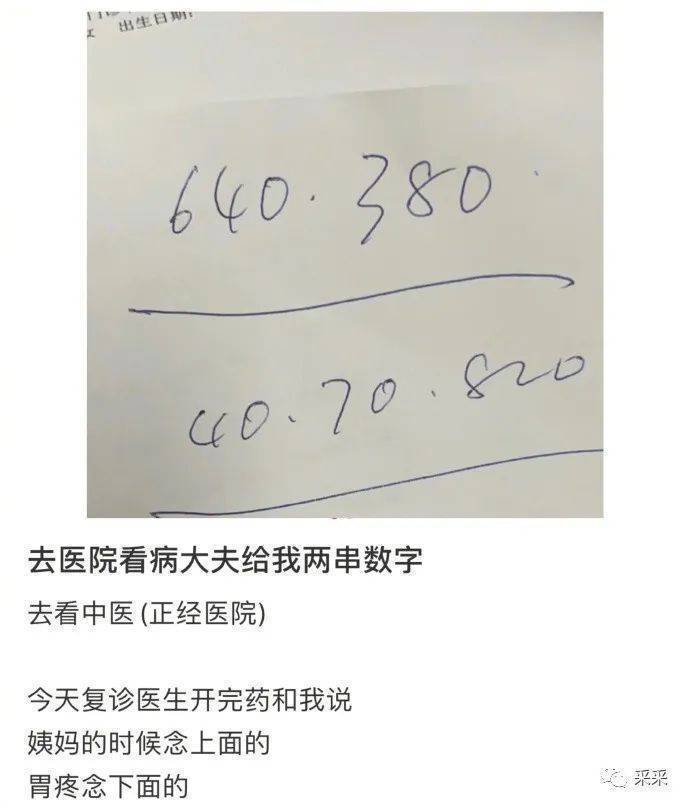 出生日期:
640.380.
40.70.820
去医院看病大夫给我两串数字
去看中医(正经医院)
今天复诊医生开完药和我说
姨妈的时候念上面的
胃疼念下面的
采采